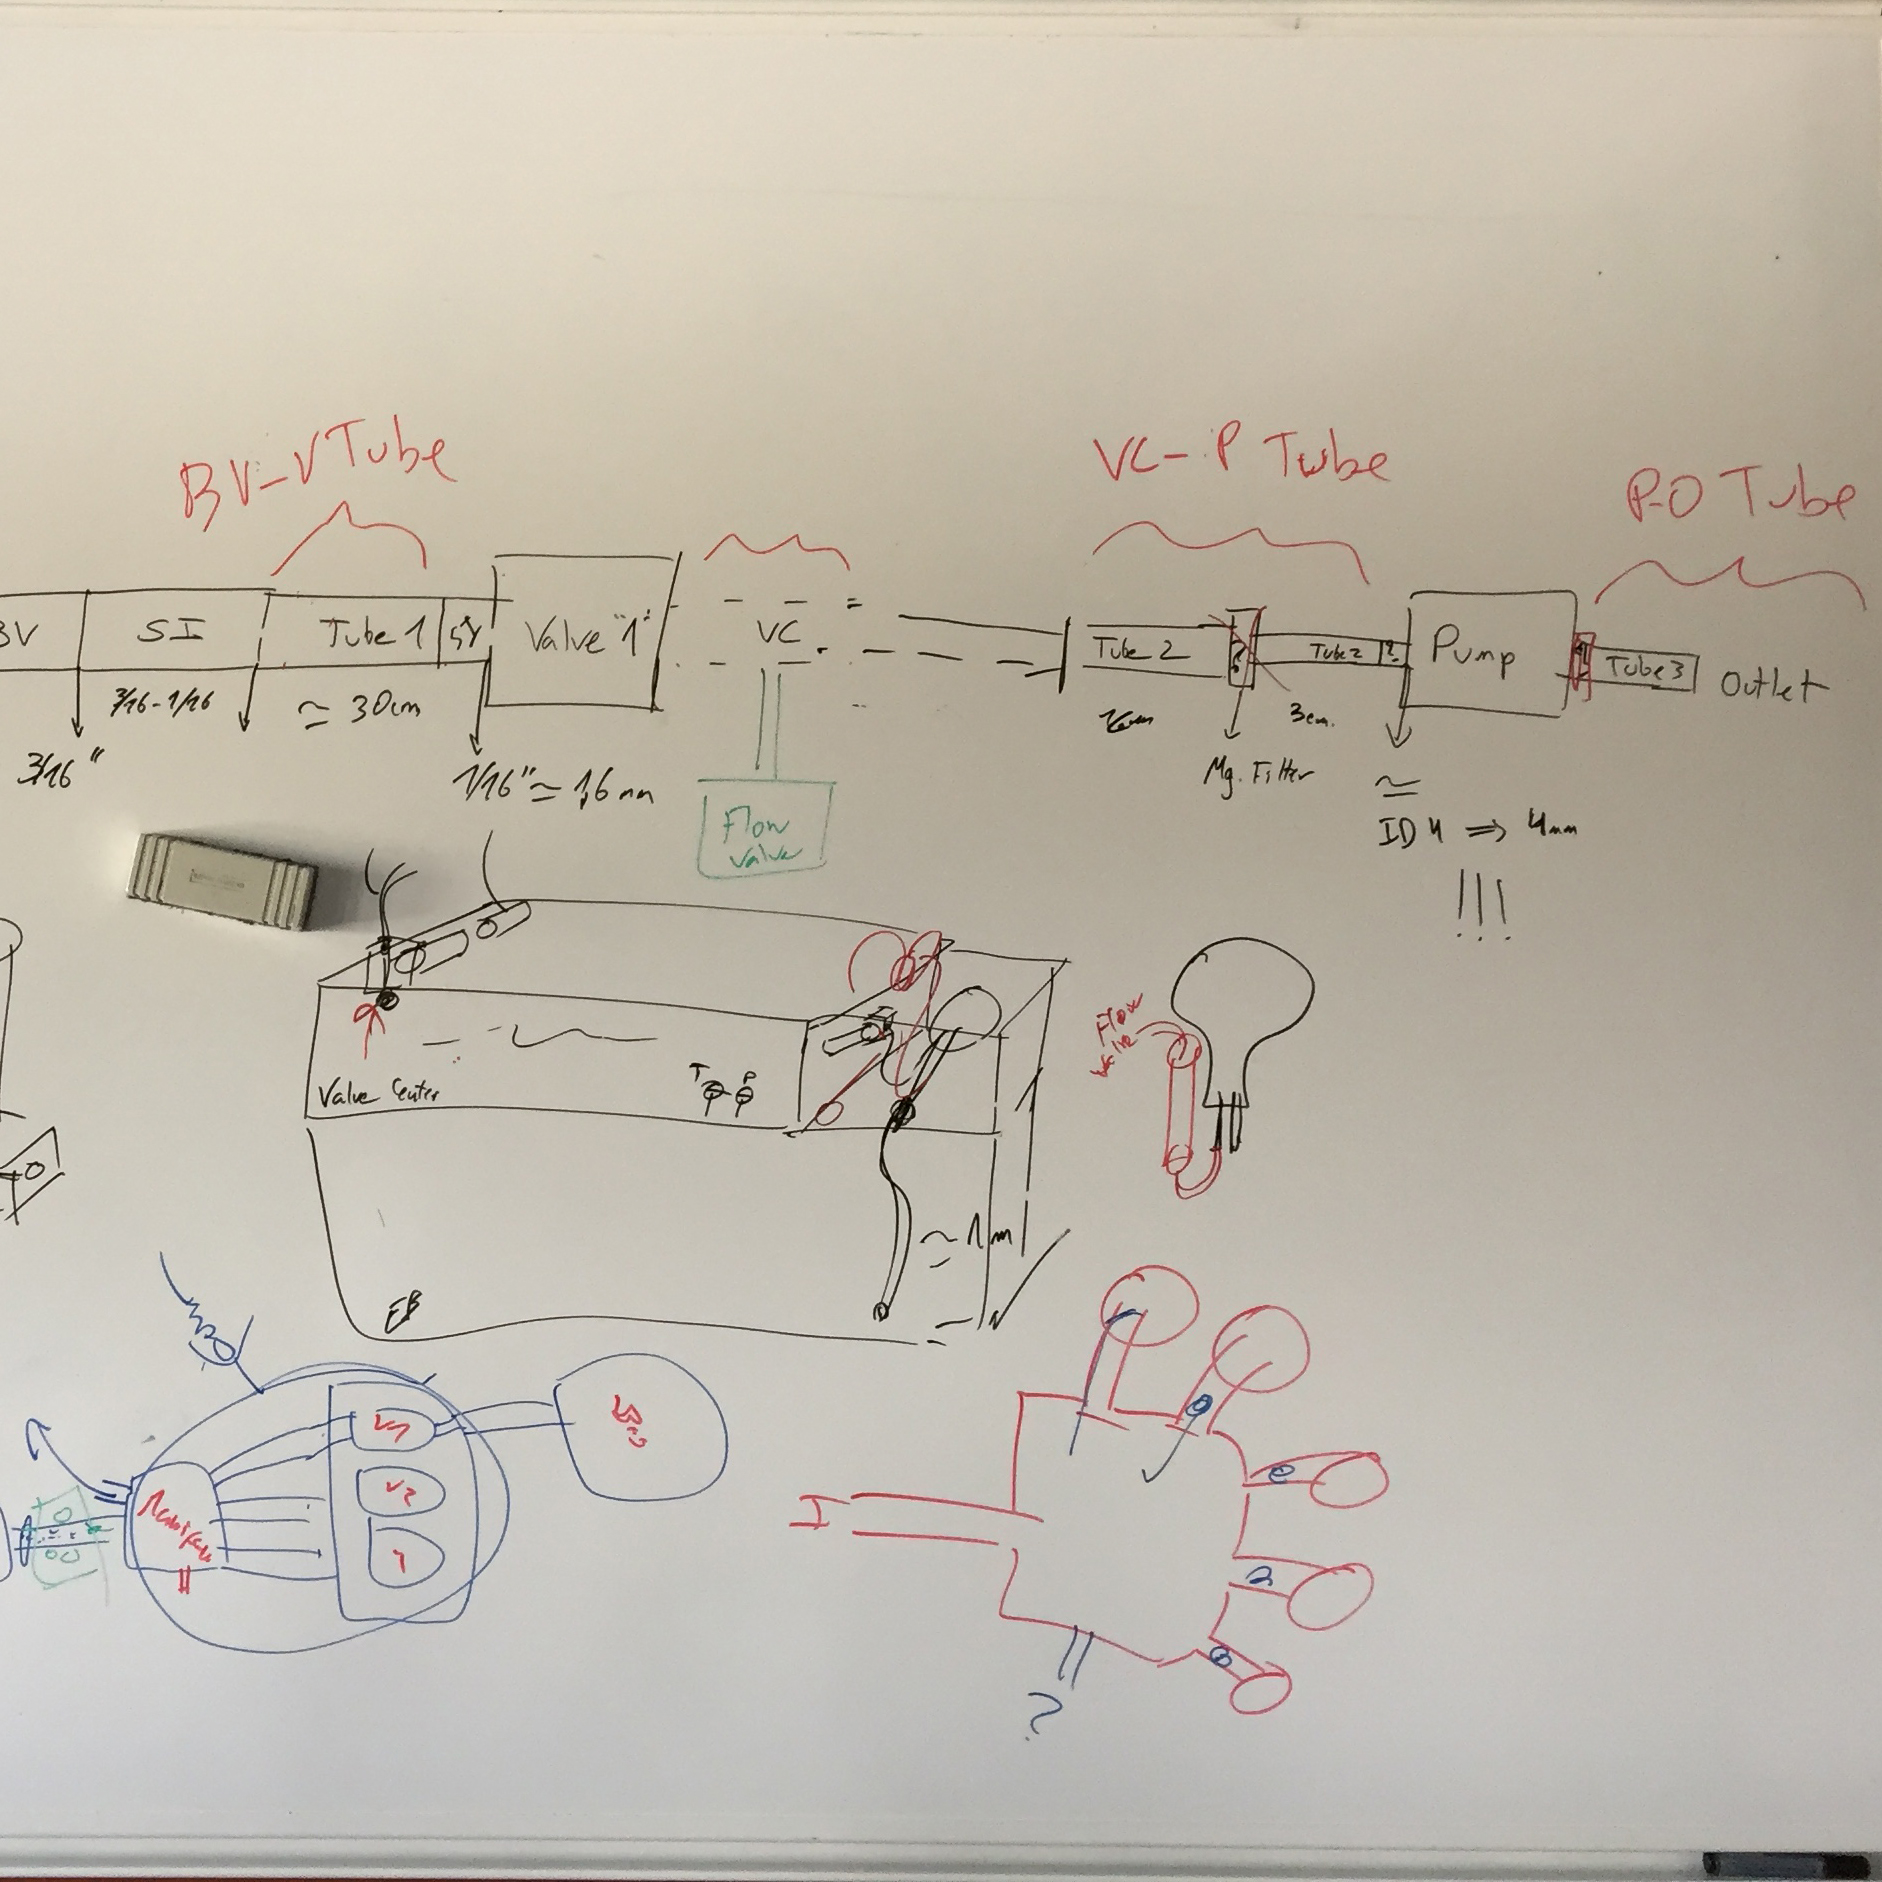 BV-V Tube
VC-P Tube
P-O Tube
BV
SI
Tube 1
Valve "1"
VC
Tube 2
Tube 2
?
Pump
Tube 3
Outlet
3/16"
3/16-1/16
≃ 30cm
1/16" ≃ 1,6mm
Flow
Valve
3cm.
Mg. Filter
≃
ID 4 ⇒ 4mm
!!!
Valve Center
T P
Flow
Valve
≃ 1m
EB
V1
V2
I
?